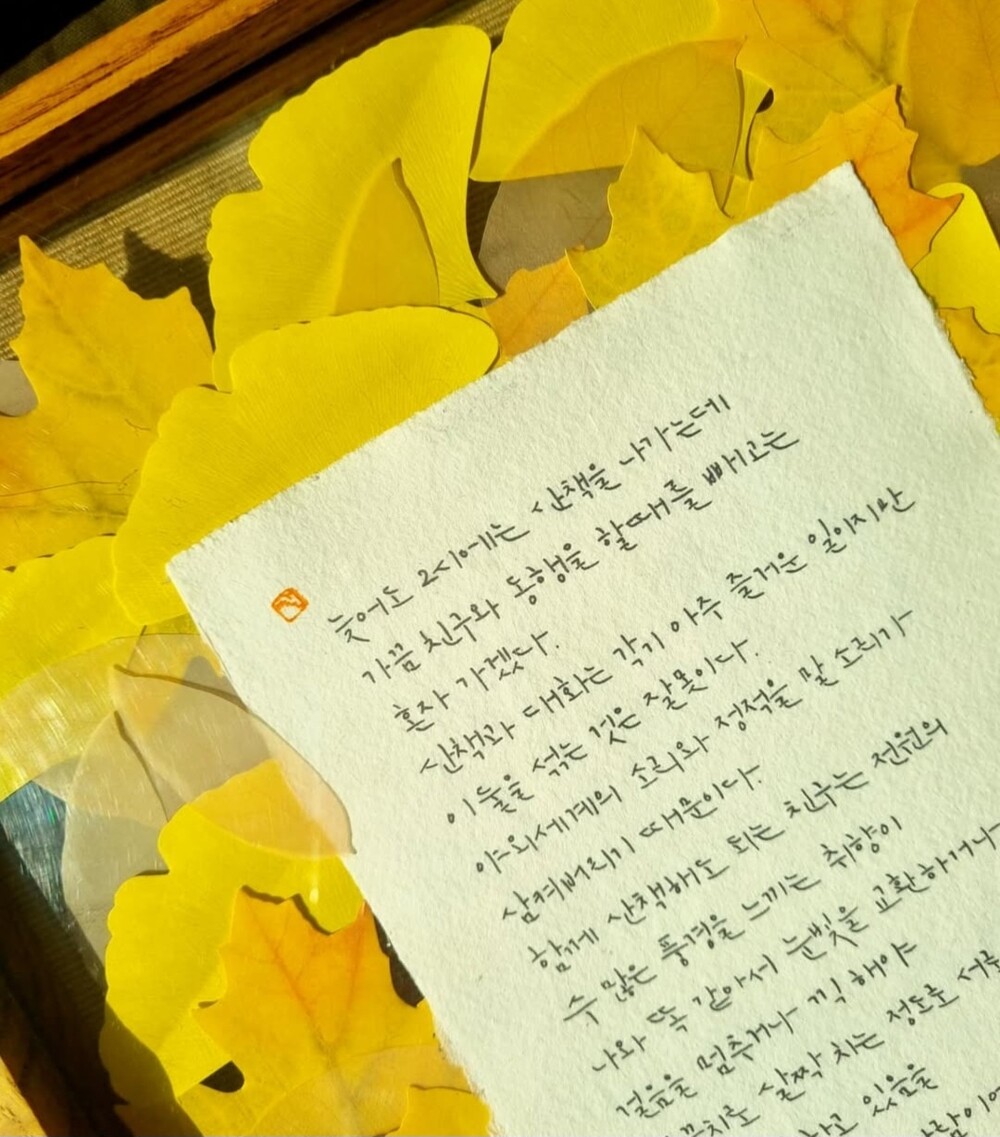 늦어도 2시에는 산책을 나가는데
가끔 친구와 동행을 할때를 빼고는
혼자 가겠다.
산책과 대화는 각기 아주 즐거운 일이지만
이 둘을 섞는 것은 잘못이다.
야외세계의 소리와 정적을 말 소리가
삼켜버리기 때문이다.
함께 산책해도 되는 친구는 전원의
수 많은 풍경을 느끼는 취향이
나와 똑 같아서 눈빛을 교환하거나
걸음을 멈추거나 끽 해야
살짝 치는 정도로
있음을